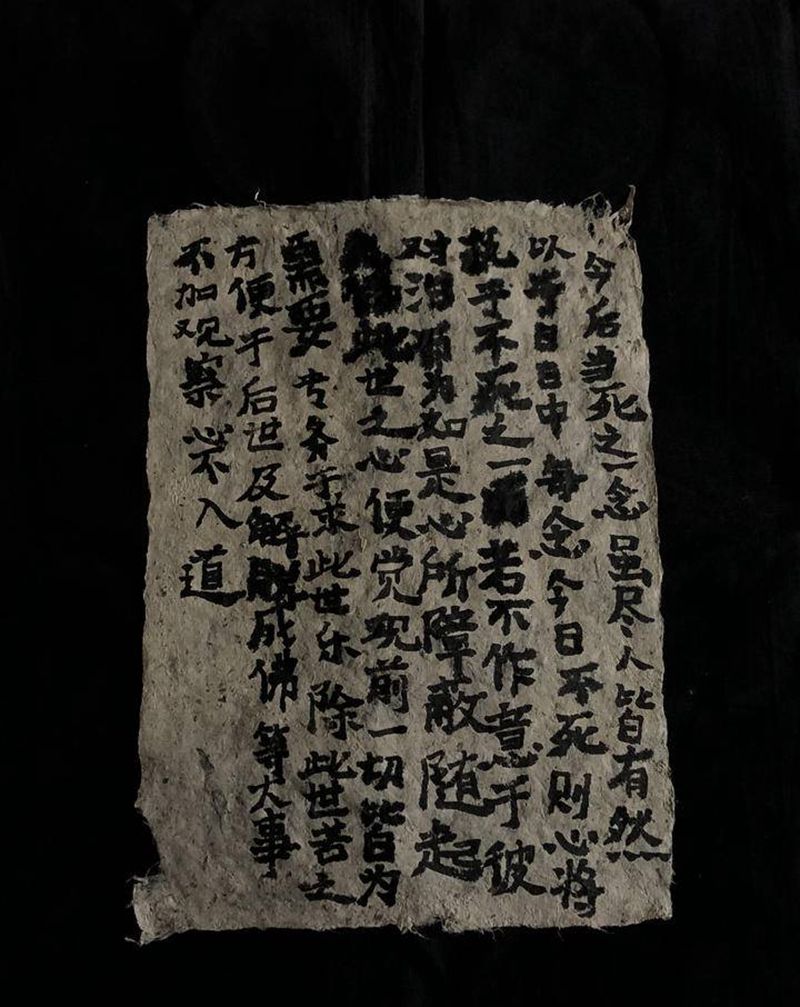 今后当死之一念虽尽人皆有然
以日日中每念今日不死则心将
执于不死之一若不作意于彼
对治而为如是心所障蔽随起
此世之心便觉现前一切皆为
需要专务于求此世乐除此世苦之
方便于后世及解脱成佛等大事
不加观察心不入道